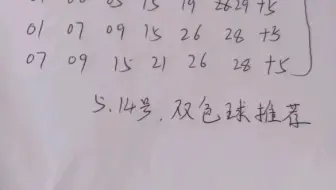 15 19 26 29 +5
01 07 09 15 26 28 +5
07 09 15 21 26 28 +5
5.14号,双色球推荐